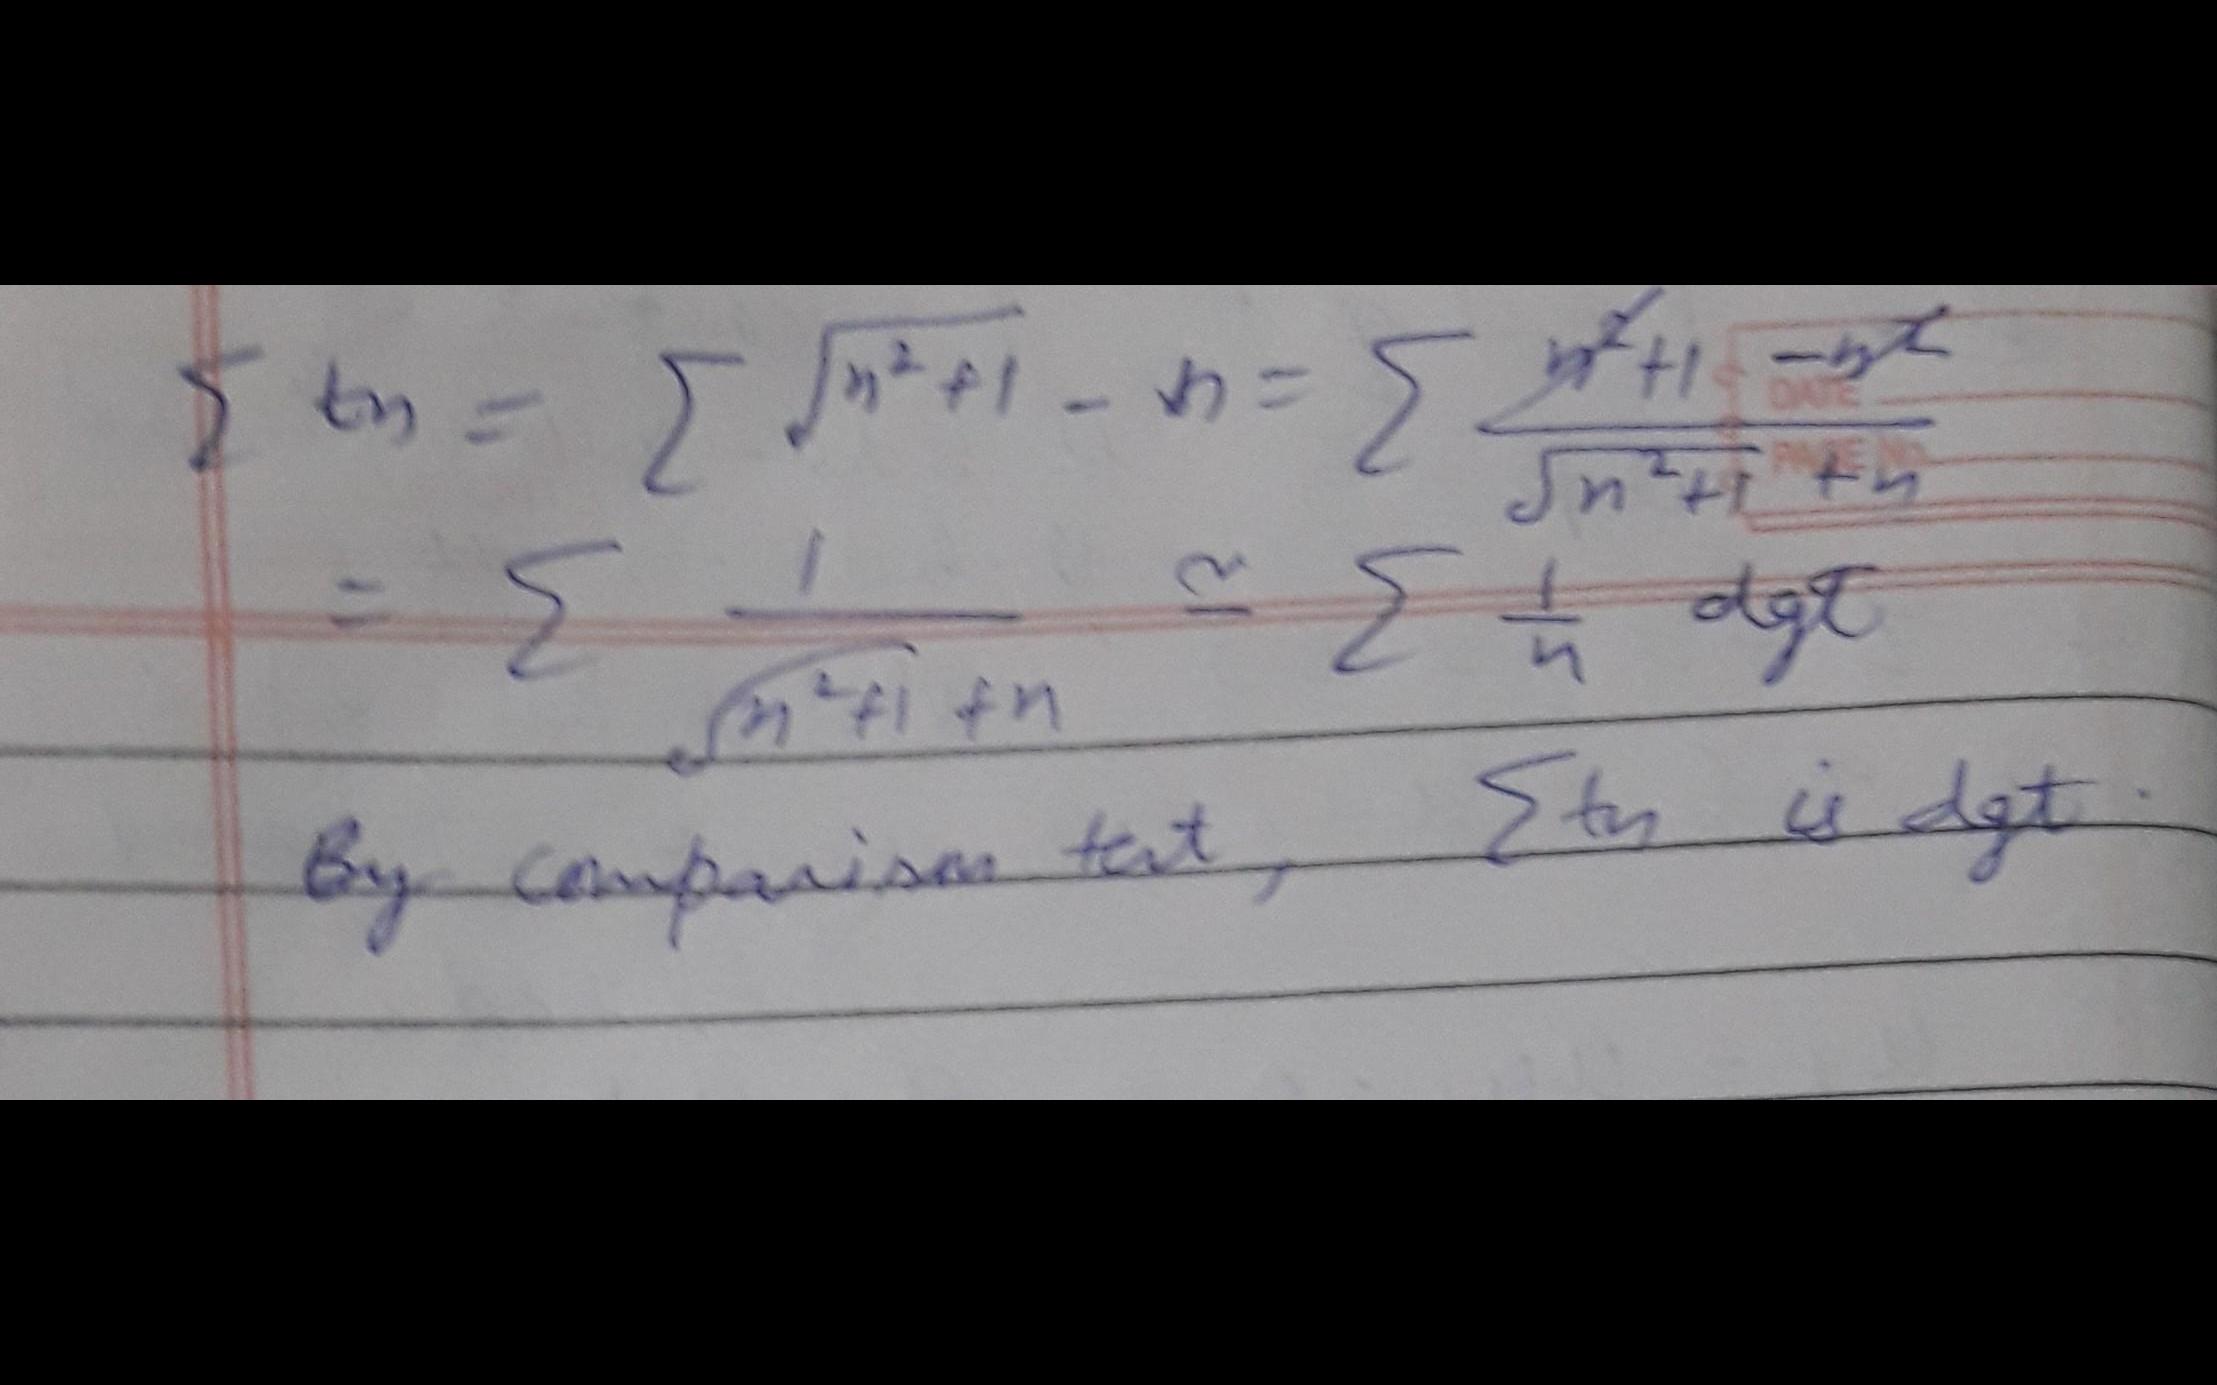 Σ tn = Σ √(n²+1) - n = Σ (n²+1 -n²)/(√(n²+1) +n)
DATE
PAGE NO.
= Σ 1/(√(n²+1) +n) ≃ Σ 1/n dgt
By comparison test, Σ tn is dgt.